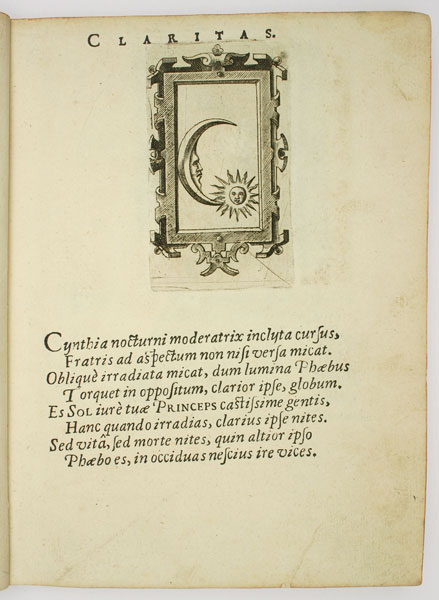 CLARITAS.
Cynthia nocturni moderatrix inclyta cursus,
Fratris ad aſpectum non niſi verſa micat.
Obliquè irradiata micat, dum lumina Phæbus
Torquet in oppoſitum, clarior ipſe, globum.
Es SOL iurè tuæ PRINCEPS caſtiſsime gentis,
Hanc quando irradias, clarius ipſe nites.
Sed vitâ, ſed morte nites, quin altior ipſo
Phæbo es, in occiduas neſcius ire vices.